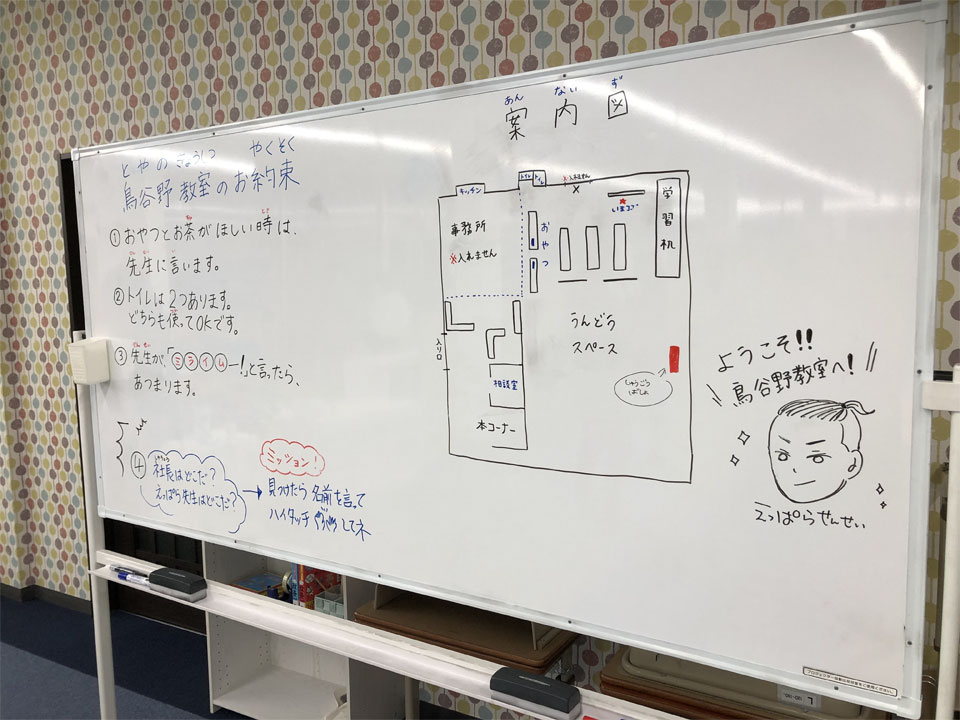 とやの きょうしつ やくそく
鳥谷野教室のお約束
①おやつとお茶がほしい時は、
先生に言います。
②トイレは2つあります。
どちらも使ってOKです。
③先生が、「ミライムー!」と言ったら、
あつまります。
④社長はどこだ?
えっぱら先生はどこだ?
→
ミッション!
見つけたら名前を言って
ハイタッチ してネ
あん ない ず
案内図
キッチン
トイレ トイレ
×入れません
×
事務所
×入れません
おやつ
★
いまココ
学習机
入り口
うんどう
スペース
相談室
本コーナー
しゅうごう
ばしょ
ようこそ!!
鳥谷野教室へ!
えっぱらせんせい